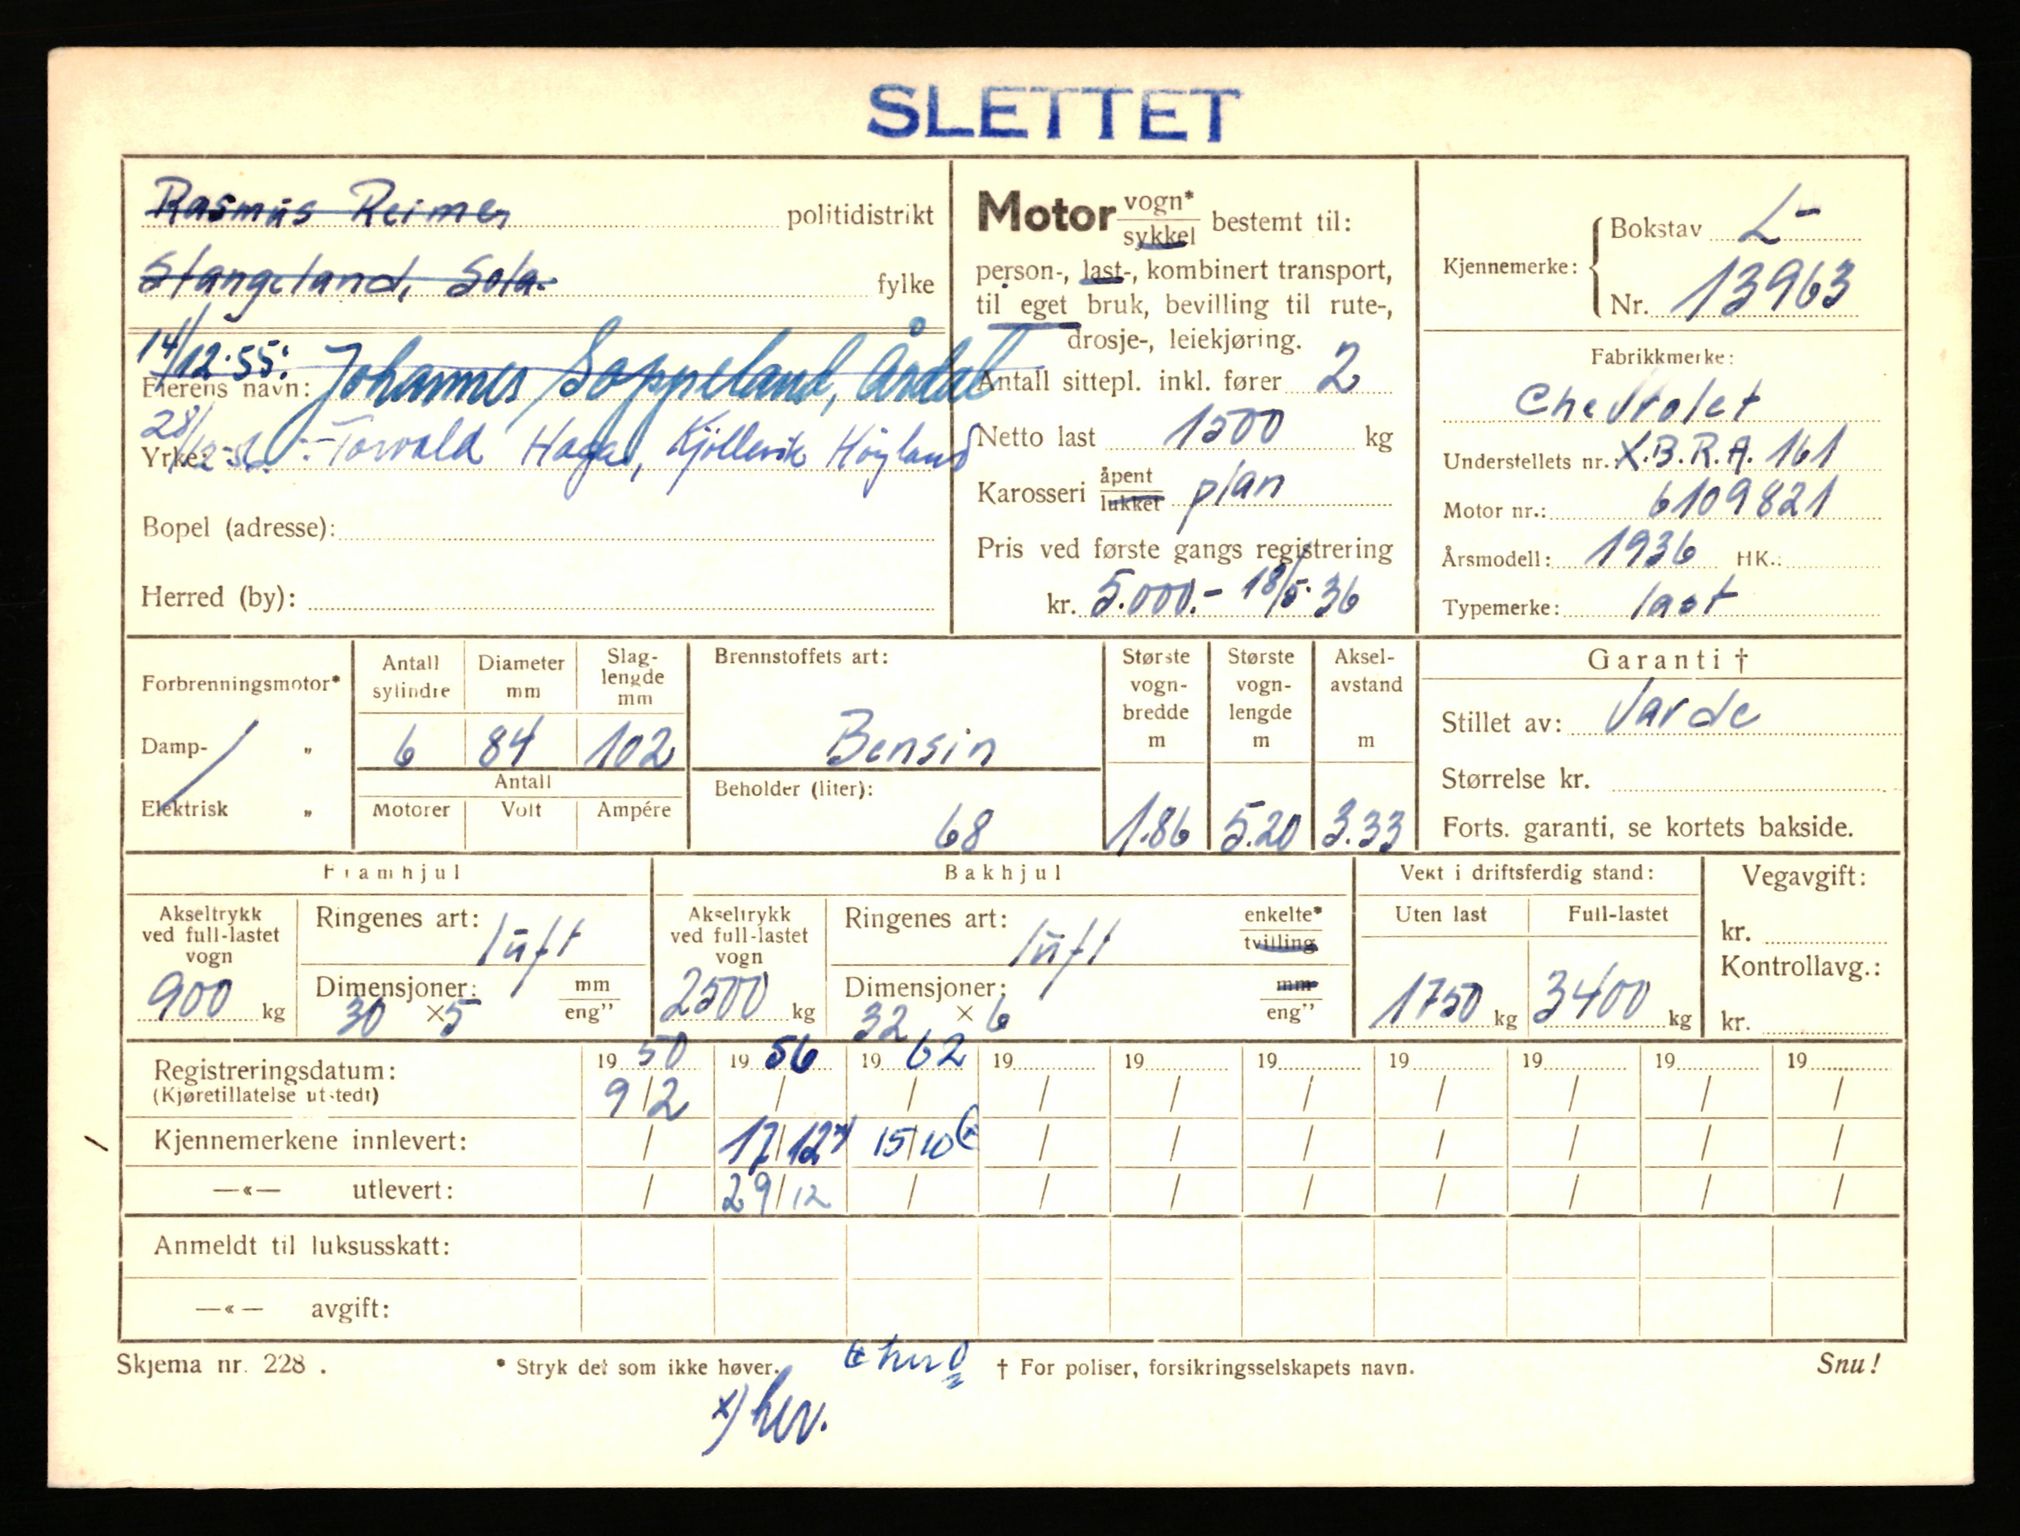 SLETTET
Rasmus Reimer politidistrikt
Stangeland, Sola. fylke
14/12.55: Johannes Soppeland, Årdal
Eierens navn:
28/12-56 - Torvald Haga, Kjøllevik Høyland
Yrke:
Bopel (adresse):
Herred (by):
Motor vogn*
sykkel bestemt til:
person-, last-, kombinert transport,
til eget bruk, bevilling til rute-,
drosje-, leiekjøring.
Antall sittepl. inkl. fører 2
Netto last 1500 kg
Karosseri åpent
lukket plan
Pris ved første gangs registrering
kr. 5.000.- 18/5.36
Kjennemerke: Bokstav L-
Nr. 13963
Fabrikkmerke:
Chevrolet
Understellets nr.: X.B.R.A. 161
Motor nr.: 6109821
Årsmodell: 1936 HK.:
Typemerke: last
Forbrenningsmotor*
Damp- „
Elektrisk „
Antall sylindre Diameter mm Slag-lengde mm
6 84 102
Antall
Motorer Volt Ampére
Brennstoffets art:
Bensin
Beholder (liter):
68
Største vogn-bredde m Største vogn-lengde m Aksel-avstand m
1.86 5.20 3.33
Garanti †
Stillet av: Varde
Størrelse kr.
Forts. garanti, se kortets bakside.
Framhjul
Akseltrykk ved full-lastet vogn
900 kg
Ringenes art: luft
Dimensjoner: mm
30 × 5 eng”
Bakhjul
Akseltrykk ved full-lastet vogn
2500 kg
Ringenes art: luft enkelte*
tvilling
Dimensjoner: mm
32 × 6 eng”
Vekt i driftsferdig stand:
Uten last Full-lastet
1750 kg 3400 kg
Vegavgift:
kr.
Kontrollavg.:
kr.
19 50 19 56 19 62 19 19 19 19 19 19 19
Registreringsdatum:
(Kjøretillatelse utstedt) 9/2 / / / / / / / / /
Kjennemerkene innlevert: / 17/12 x) 15/10 / / / / / / /
—«— utlevert: / 29/12 / / / / / / / /
Anmeldt til luksusskatt:
—«— avgift:
Skjema nr. 228 .
* Stryk det som ikke høver.
† For poliser, forsikringsselskapets navn.
Snu!
x) hev.